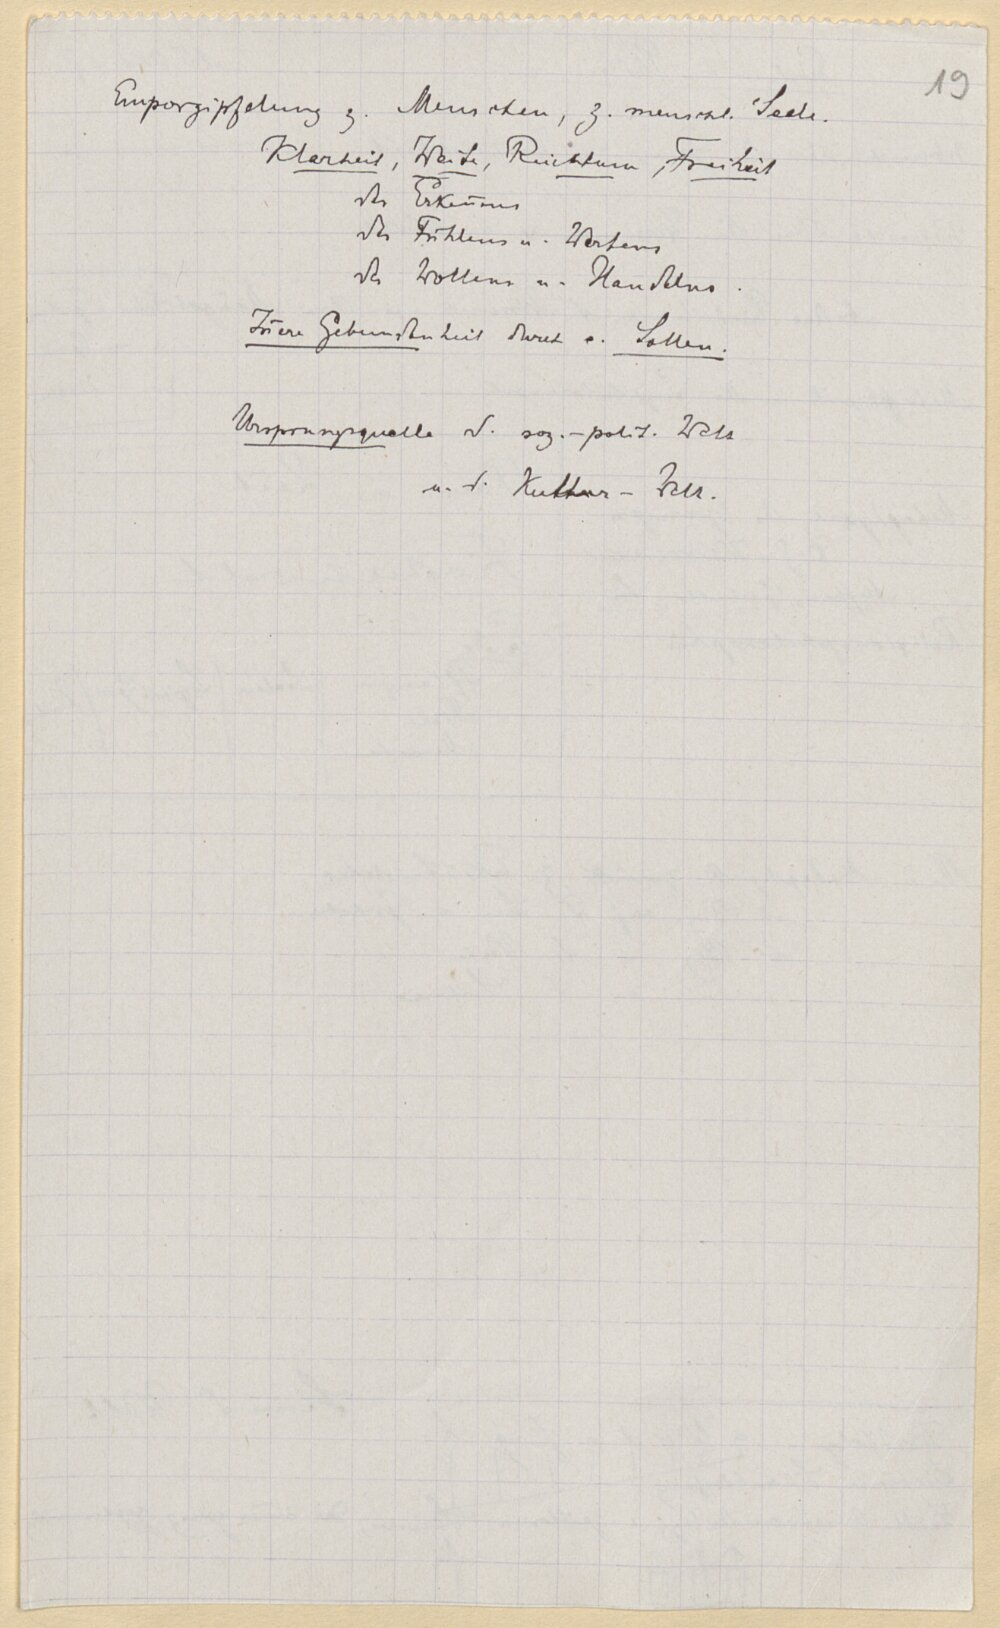 19
Emporgipfelung z. Menschen, z. menschl. Seele.
Klarheit, Weite, Reichtum, Freiheit
des Erkenn̄ens
des Fühlens u. Wertens
des Wollens u. Handelns.
In̄ere Gebundenheit durch e. Sollen.
Ursprungsquelle d. soz.-polit. Welt
u. d. Kultur-Welt.